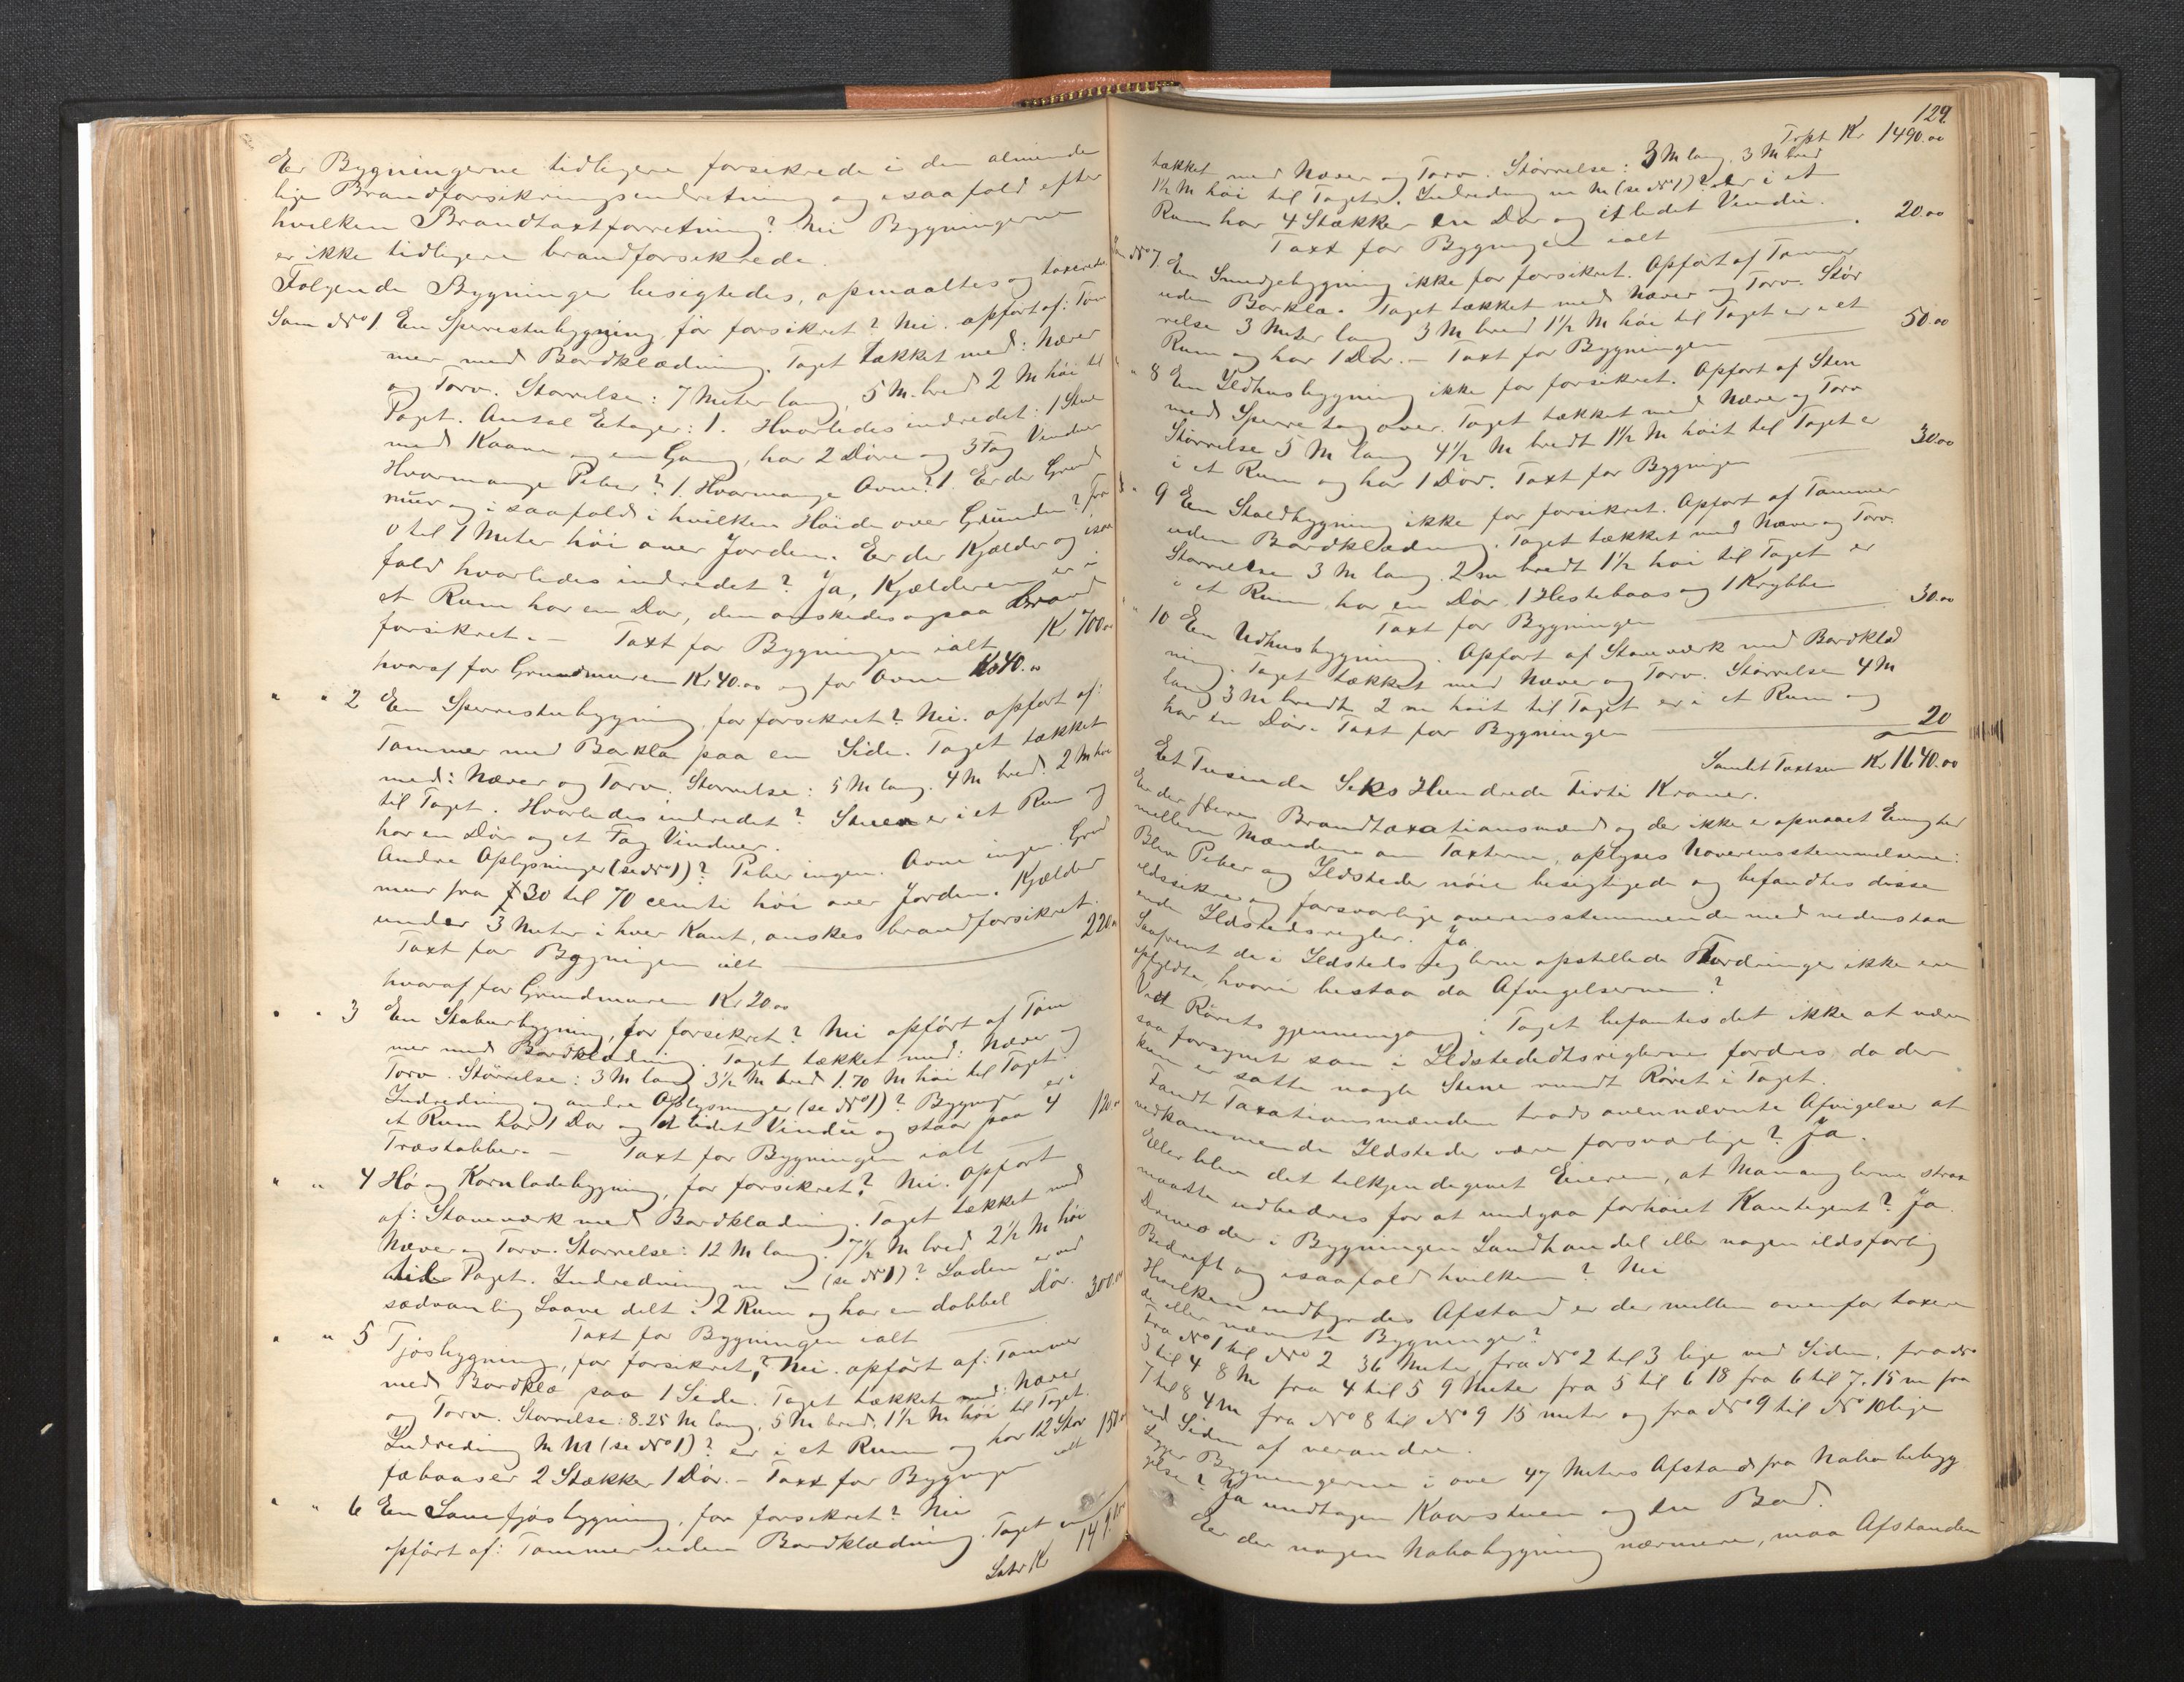 Er Bygningerne tidligere forsikrede i den alminde
lige Brandforsikringsindretning og isaafald efter
hvilken Brandtaxtforretning? Nei Bygningerne
er ikke tidligere brandforsikrede.
Følgende Bygninger besigtedes, opmaaltes og taxerede
Som No 1 En Sperrestubygning, før forsikret? Nei. opført af: Tøm
mer med Bordklædning. Taget tækket med: Næver
og Torv. Størrelse: 7 Meter lang, 5 M. bred 2 M høi til
Taget. Antal Etager: 1. Hvorledes indredet: 1 Stue
med Kaave og en Gang, har 2 Døre og 3 Fag Vinduer
Hvormange Piber? 1. Hvormange Ovne? 1. Er der Grund
mur og i saafald i hvilken Høide over Grunden? fra
0 til 1 Meter høi over Jorden. Er der Kjælder og isaa
fald hvorledes indredet? Ja, Kjælderen er i
et Rum har en Dør, den ønskedes ogsaa Brand
forsikret. — Taxt for Bygningen ialt Kr 700.00
hvoraf for Grundmuren Kr 40.00 og for Ovne Kr 40.00
" " 2 En Sperrestubygning, før forsikret? Nei. opført af:
Tømmer med Borkla paa en Side. Taget tækket
med: Næver og Torv. Størrelse: 5 M lang. 4 M bred. 2 M høi
til Taget. Hvorledes indredet? Stuen er i et Rum og
har en Dør og et Fag Vinduer.
Andre Oplysninger (se No 1)? Piber ingen. Ovne ingen. Grund
mur fra 30 til 70 cemti høi over Jorden. Kjælder
under 3 Meter i hver Kant, ønskes brandforsikret.
Taxt for Bygningen ialt — 220.00
hvoraf for Grundmuren Kr 20.00
" " 3 En Staburbygning, før forsikret? Nei opført af Tøm
mer med Bordklædning. Taget tækket med: Næver og
Torv. Størrelse: 3 M lang 3½ M bred 1.70 M høi til Taget.
Indredning og andre Oplysninger (se No 1)? Bygningen er i
et Rum har 1 Dør og et lidet Vindue og staar paa 4
Træstabber. — Taxt for Bygningen ialt — 120.00
" " 4 Hø og Kornladebygning, før forsikret? Nei. Opført
af: Staveværk med Bordklædning. Taget tækket med
Næver og Torv. Størrelse: 12 M lang. 7½ M bred 2½ M høi
til Taget. Indredning m m (se No 1)? Laden er ved
sædvanlig Laave delt i 2 Rum og har en dobbel Dør.
Taxt for Bygningen ialt — 300.00
" " 5 Fjøsbygning, før forsikret? Nei. opført af: Tømmer
med Bordkla paa 1 Side. Taget tækket med: Næver
og Torv. Størrelse: 8.25 M lang, 5 M bred, 1½ M høi til Taget.
Indredning m m (se No 1)? er i et Rum og har 12 Stor
fæbaaser 2 Stækker 1 Dør. — Taxt for Bygningen ialt 150.00
" " 6 En Sauefjøsbygning, før forsikret? Nei
opført af: Tømmer uden Bordklædning. Taget er
Latr Kr 1490.00
129
Trpt Kr 1490.00
tækket med Næver og Torv. Størrelse: 3 M lang. 3 M bred
1½ M høi til Taget. Indredning m m (se No 1)? er i et
Rum har 4 Stækker en Dør og et lidet Vindue.
Taxt for Bygningen ialt — 20.00
" No 7. En Smedjebygning ikke før forsikret. Opført af Tømmer
uden Borkla. Taget tækket med Næver og Torv. Stør
relse 3 Meter lang 3 M bred 1½ M høi til Taget er i et
Rum og har 1 Dør. — Taxt for Bygningen — 50.00
" " 8 En Ildhusbygning ikke før forsikret. Opført af Sten
med Sperretag over. Taget tækket med Næver og Torv
Størrelse 5 M lang 4½ M bredt 1½ M høit til Taget er
i et Rum og har 1 Dør. Taxt for Bygningen — 30.00
" " 9 En Staldbygning ikke før forsikret. Opført af Tømmer
uden Bordklædning. Taget tækket med Næver og Torv.
Størrelse 3 M lang. 2 m bredt 1½ høi til Taget er
i et Rum har en Dør. 1 Hestebaas og 1 Krybbe
Taxt for Bygningen — 30.00
" 10 En Udhusbygning. Opført af Staveværk med Bordklæd
ning. Taget tækket med Næver og Torv. Størrelse 4 M
lang 3 M bredt 2 m høit til Taget er i et Rum og
har en Dør. Taxt for Bygningen — 20
Samlet Taxtsum Kr 1640.00
Et Tusinde Seks Hundrede Firti Kroner.
Er der flere Brandtaxationsmænd og der ikke er opnaaet Enighed
mellem Mændene om Taxterne, oplyses Uoverensstemmelserne:
Blev Piber og Ildsteder nøie besigtigede og befandtes disse
ildssikre og forsvarlige overensstemmende med nedenstaa
ende Ildstedsregler. Ja
Saafremt de i Ildstedsreglerne opstillede Fordringer ikke ere
opfyldte, hvori bestaa da Afvigelserne?
Ved Rørets gjennemgang i Taget befantes det ikke at være
saa forsynet som i Ildstededtsreglerne fordres, da der
kun er satte nogle Stene rundt Røret i Taget.
Fandt Taxationsmændene trods ovennævnte Afvigelser at
vedkommende Ildsteder være forsvarlige? Ja.
Eller blev det tilkjendegivet Eieren, at Manglerne strax
maatte udbedres for at undgaa forhøiet Kontigent? Ja
Drives der i Bygningen Landhandel eller nogen ildsfarlig
Bedrift og isaafald hvilken? Nei
Hvilken indbyrdes Afstand er der mellem ovenfor taxere
de eller nævnte Bygninger?
Fra No 1 til No 2 36 Meter, fra No 2 til 3 lige ved Siden, fra No
3 til 4 8 M fra 4 til 5 9 Meter fra 5 til 6 18 fra 6 til 7. 15 m fra
7 til 8 4 m fra No 8 til No 9 15 meter og fra No 9 til No 10 lige
ved Siden af verandre.
Ligger Bygningerne i over 47 Meters Afstand fra Nabobebyg
gelse? Ja undtagen Kaarstuen og en Bod.
Er der nogen Nabobygning nærmere, maa Afstanden